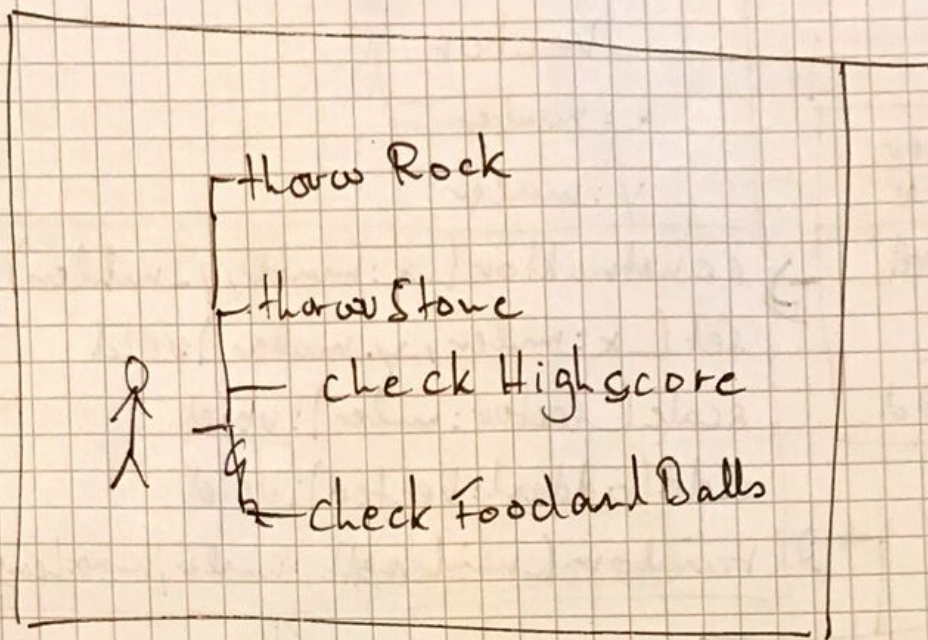 thorow Rock
thorow Stone
check Highscore
check Food and Balls